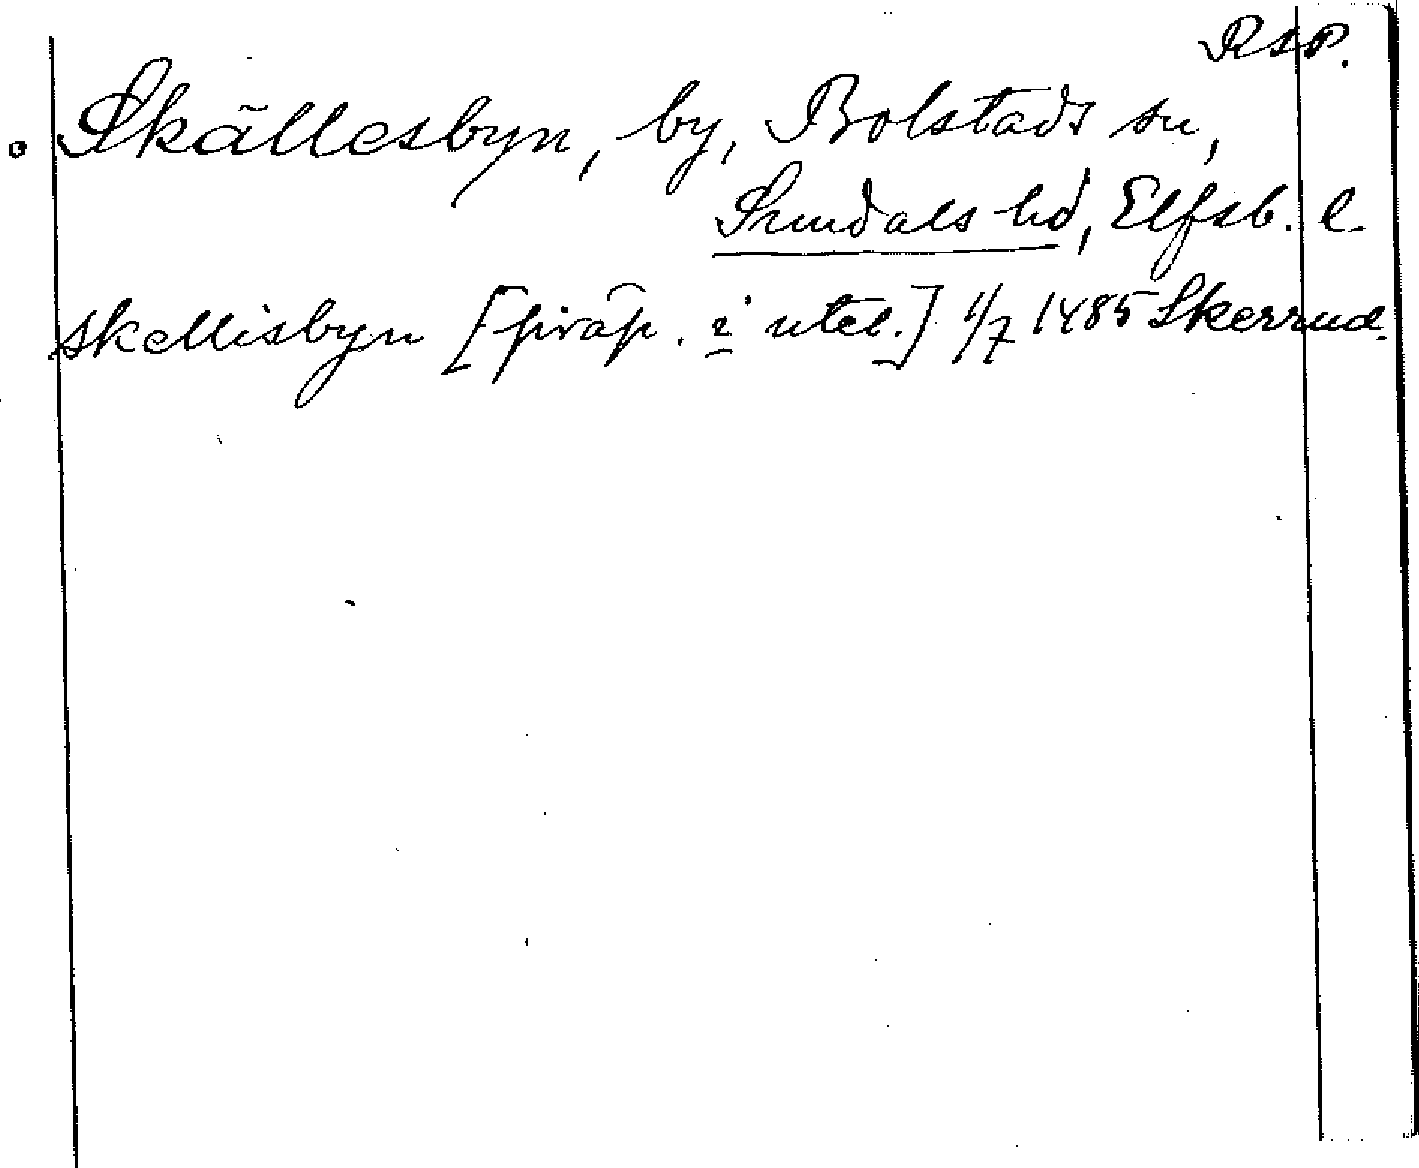 RAP.
Skällesbyn, by, Bolstads sn,
Sundals hd, Elfsb. l.
skellisbyn [präp. i utel.] 1/7 1485 Skerrud.